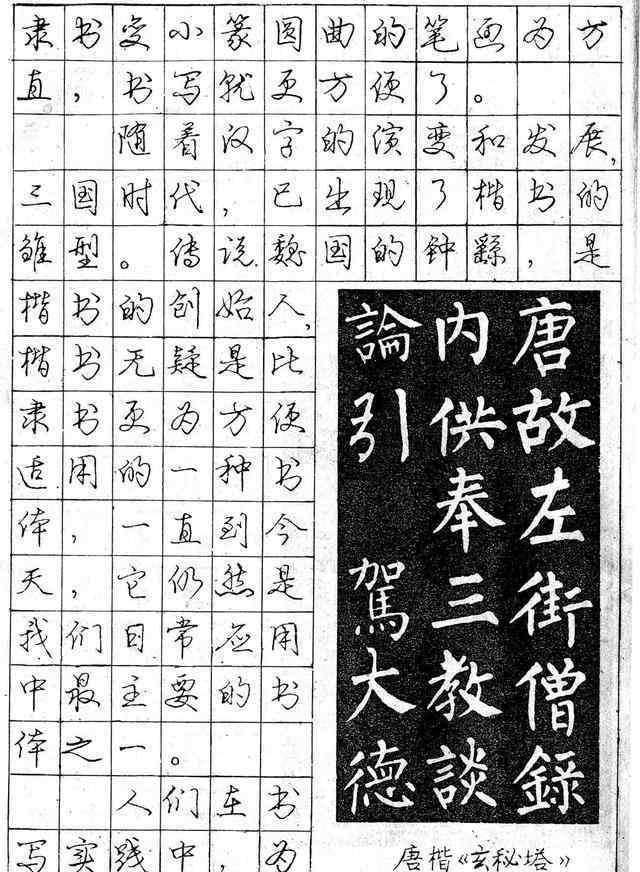 隶书变小篆圆曲的笔画为方
直，书写就更方便了。
随着汉字的演变和发展，
三国时代，已出现了楷书的
雏型。传说魏国的钟繇，是
楷书的创始人，
楷书无疑是比
隶书更为方便
适用的一种书
体，一直到今
天，它仍然是
我们日常应用
中最主要的书
体之一。
人们在书
写实践中，为
唐故左街僧録
内供奉三教談
論引駕大德
唐楷《玄秘塔》